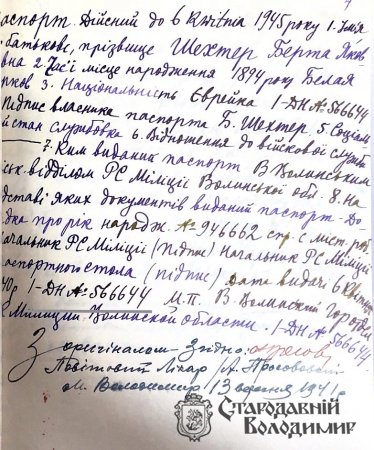 7
аспорт. Дійсний до 6 Квітня 1945 року 1. Імя
батькове, прізвище Шехтер Берта Яков
вна 2. Час і місце народження 1894 року Белая
рков 3. Національність Єврейка 1-ДН № 566644
Підпис власника паспорта Б. Шехтер 5 Соціаль
й стан службовка 6. Відношення до військової служб
7. Ким виданий паспорт В Волинським
ськ-відділом РС Міліції Волинської обл. 8. На
дставі яких документів виданий паспорт - До
дка про рік народж. № 946662 спр. с міст. роб.
Начальник РС Міліції (підпис) Начальник РС Міліції
аспортного стола (підпис) Дата видачі 6 Квітня
40р 1-ДН № 566644 М.П. В. Волинский Горотдел
С Милиции Волинской области. 1-ДН № 566644
З оригіналом Згідно:
Повітовий Лікар /А.
м. Володимир 13 вересня 1941 р
Стародавній
Володимир